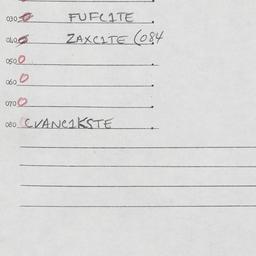 030 FUFC1TE
040 ZAXC1TE (084
050
060
070
080 CVANC1KSTE